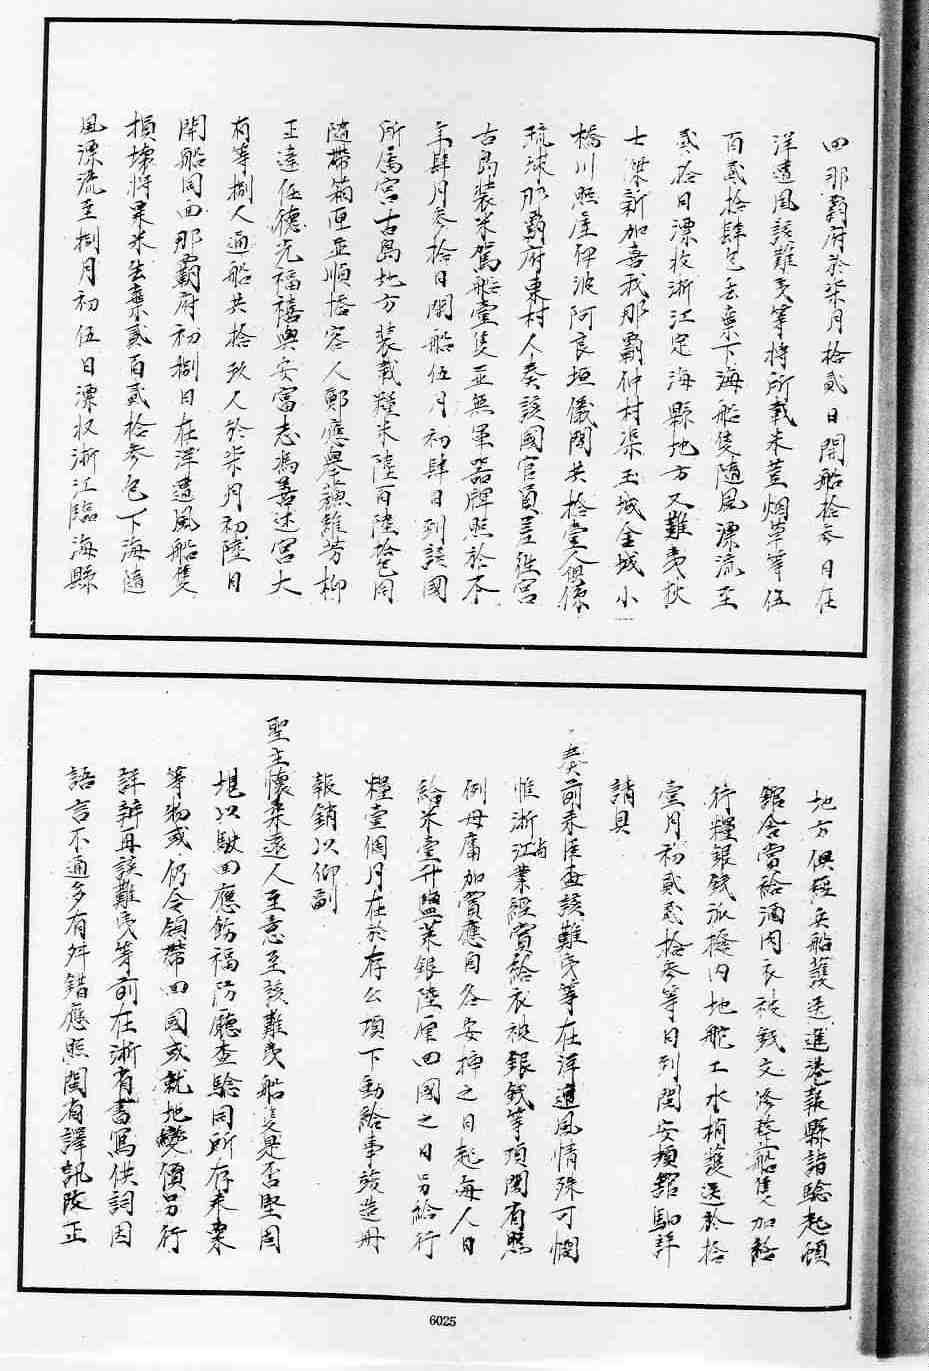 回那霸府於柒月拾貳日開船拾叁日在
洋遭風該難夷等將所載米荳烟草等伍
百貳拾肆包丟棄下海船隻隨風漂流至
貳拾日漂收浙江定海縣地方又難夷狄
士傑新加喜我那霸仲村渠玉城金城小
橋川照屋伊波阿良垣儀間共拾壹人俱係
琉球那霸府東村人奏該國官員差往宮
古島裝米駕船壹隻並無軍器牌照於本
年肆月叁拾日開船伍月初肆日到該國
所屬宮古島地方裝載糧米陸百陸拾包同
隨帶箱匣並順搭客人鄭應興蔡 維芳柳
正遠任德光福禧與安富志馮善述宮大
有等捌人通船共拾玖人於柒月初陸日
開船同回那霸府初捌日在洋遭風船隻
損壞將粟米丟棄貳百貳拾叁包下海隨
風漂流至捌月初伍日漂收浙江臨海縣
地方俱經兵船護送進港報縣詣驗起碩
館舍賞給酒肉衣被錢文修整船隻加給
行糧銀錢派撥內地舵工水梢護送於拾
壹月初貳貳拾叁等日到閩安頓館驛詳
請具
奏前來臣查該難夷等在洋遭風情殊可憫
惟浙江省業經賞給衣被銀錢等項閩省照
例毋庸加賞應自各安插之日起每人日
給米壹升鹽菜銀陸厘回國之日另給行
糧壹個月在於存公項下動給事竣造冊
報銷以仰副
聖主懷柔遠人至意至該難夷船隻是否堅固
堪以駛回應飭福防廳查驗同所存米粟
等物或仍令領帶回國或就地變價另行
詳辦再該難夷等前在浙省書寫供詞因
語言不通多有舛錯應照閩省譯訊改正
6025